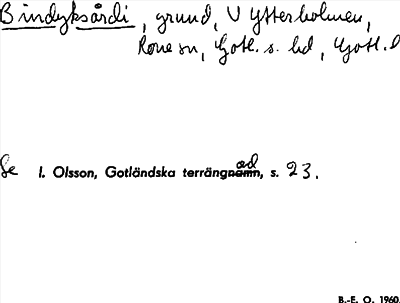 Bindyksårdi, grund, V Ytterholmen,
Rone sn, Gotl. s. hd, Gotl. l
Se I. Olsson, Gotländska terrängnamn, ord s. 23.
B.-E. O. 1960.